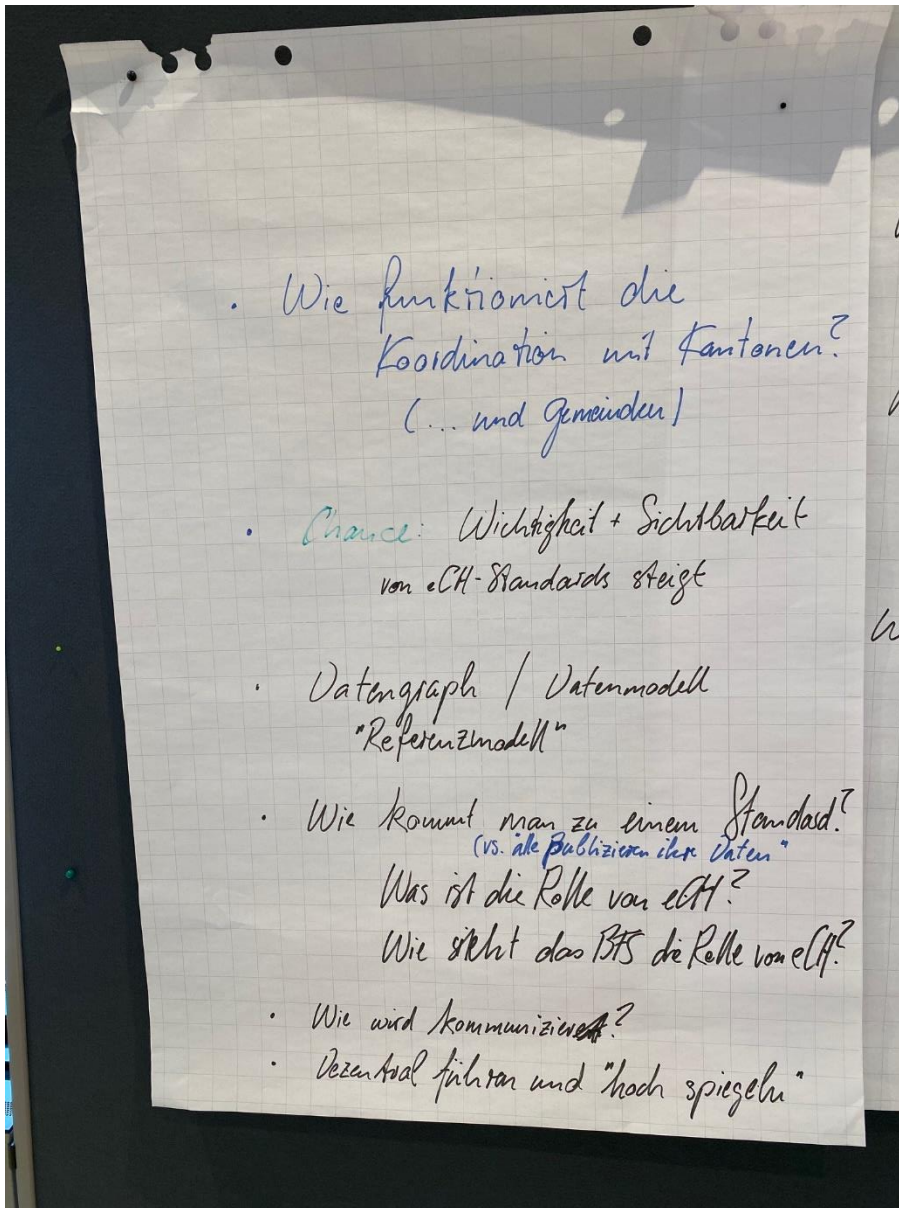 · Wie funktioniert die
Koordination mit Kantonen?
(... und Gemeinden)
· Chance: Wichtigkeit + Sichtbarkeit
von eCH-Standards steigt
· Datengraph / Datenmodell
"Referenzmodell"
· Wie kommt man zu einem Standard?
(vs. alle publizieren ihre Daten"
Was ist die Rolle von eCH?
Wie sieht das BFS die Rolle von eCH?
· Wie wird kommuniziert?
· Dezentral führen und "hoch spiegeln"